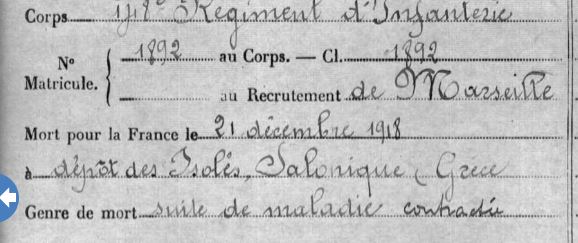 Corps 148e Régiment d'Infanterie
N° Matricule. { 1892 au Corps. — Cl. 1892
au Recrutement de Marseille
Mort pour la France le 21 décembre 1918
à dépôt des Isolés, Salonique (Grece
Genre de mort suite de maladie contractée